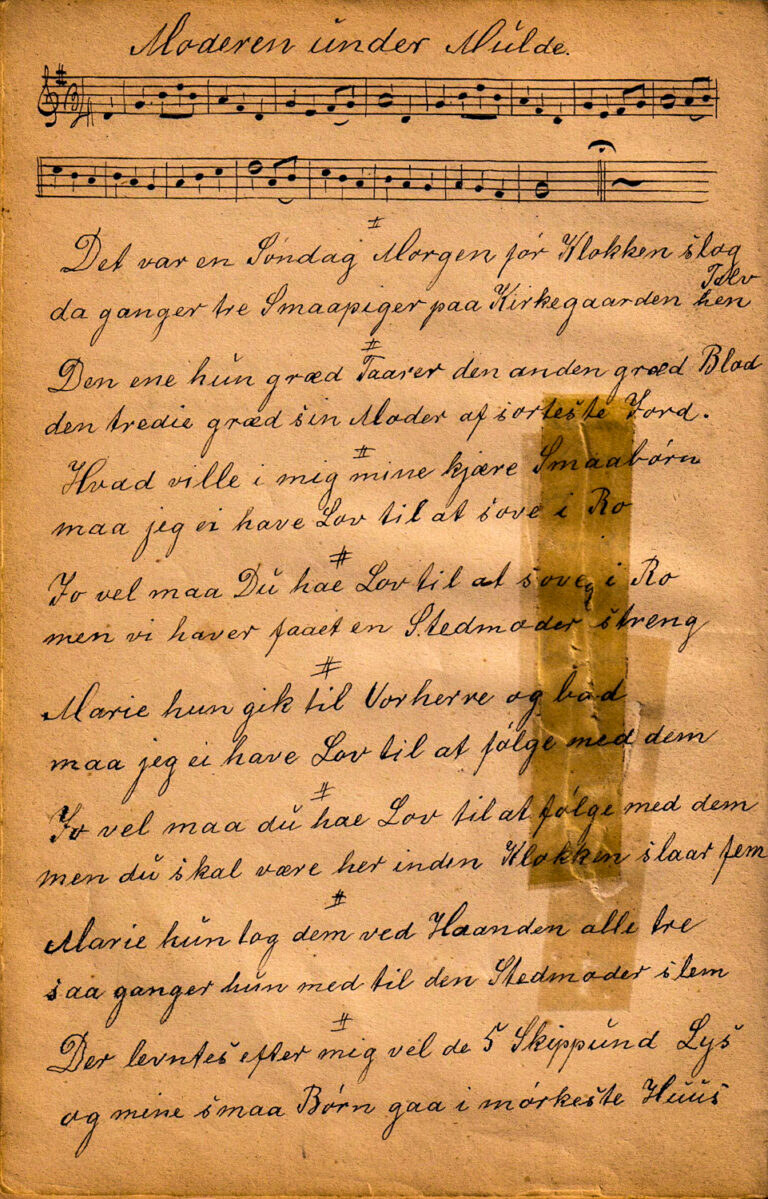 Moderen under Mulde.
Det var en Søndag Morgen før Klokken slog
Tolv
da ganger tre Smaapiger paa Kirkegaarden hen
Den ene hun græd Taarer den anden græd Blod
den tredie græd sin Moder af sorteste Jord.
Hvad ville i mig mine kjære Smaabørn
maa jeg ei have Lov til at sove i Ro
Jo vel maa Du hae Lov til at sove i Ro
men vi haver faaet en Stedmoder streng
Marie hun gik til Vorherre og bad
maa jeg ei have Lov til at følge med dem
Jo vel maa du hae Lov til at følge med dem
men du skal være her inden Klokken slaar fem
Marie hun tog dem ved Haanden alle tre
saa ganger hun med til den Stedmoder slem
Der levntes efter mig vel de 5 Skippund Lys
og mine smaa Børn gaa i mørkeste Huus